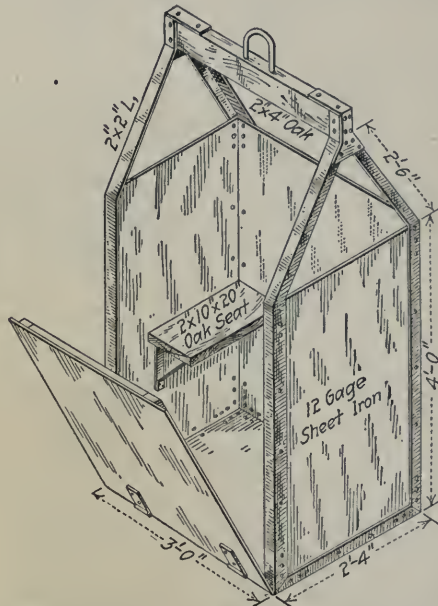 2"x2"L,
2"x4" Oak
2'-6"
2"x10"x20"
Oak Seat
4'-0"
12 Gage
Sheet Iron
3'-0"
2'-4"